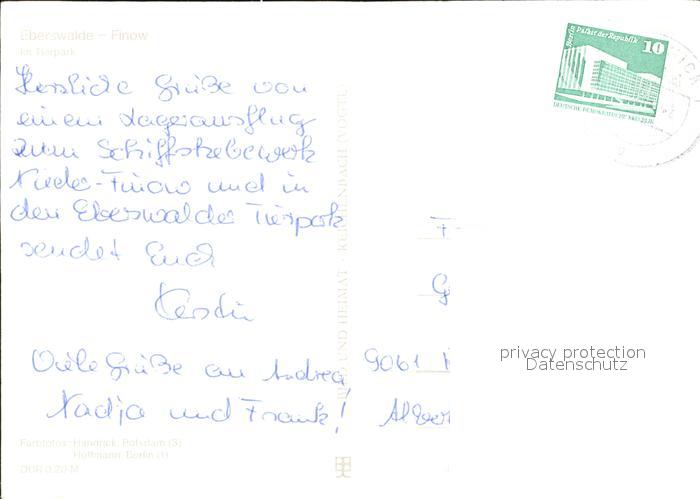 Eberswalde - Finow
Im Tierpark
Herzliche Grüße von
einem Tagesausflug
zum Schiffshebewerk
Nieder-Finow und in
den Eberswalder Tierpark
sendet Euch
Kerstin
Viele Grüße an Andrea,
Nadja und Frank!
Farbfotos: Handrick, Potsdam (3)
Hoffmann, Berlin (1)
DDR 0,20 M
BILD UND HEIMAT REICHENBACH (VOGTL
Berlin Palast der Republik
10
DEUTSCHE DEMOKRATISCHE REPUBLIK
F
G
9061
privacy protection
Datenschutz